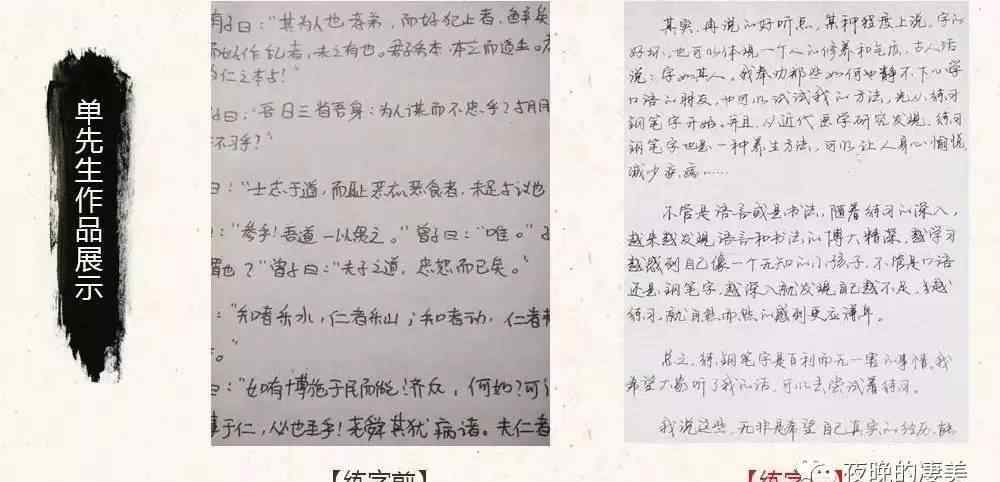 单先生作品展示
有子曰："其为人也孝弟，而好犯上者，鲜矣
而好作乱者，未之有也。君子务本，本立而道生。
仁之本与！"
曰："吾日三省吾身：为人谋而不忠乎？与朋
不习乎？"
曰："士志于道，而耻恶衣恶食者，未足与议也
："参乎！吾道一以贯之。"曾子曰："唯。"
谓也？"曾子曰："夫子之道，忠恕而已矣。"
："知者乐水，仁者乐山；知者动，仁者
。"
曰："如有博施于民而能济众，何如？可
事于仁，必也圣乎！尧舜其犹病诸。夫仁者
【练字前】
其实，再说的好听点，某种程度上说，字的
好坏，也可以体现一个人的修养和气质，古人话
说：字如其人。我奉劝那些如何也静不下心学
口语的朋友，也可以试试我的方法，先从练习
钢笔字开始。并且，从近代医学研究发现，练习
钢笔字也是一种养生方法，可以让人身心愉悦，
减少疾病……
不管是语言或是书法，随着练习的深入，
越来越发现语言和书法的博大精深，越学习
越感到自己像一个无知的小孩子，不管是口语
还是钢笔字，越深入就发现自己越不足，越
练习，就自然而然的感到更应谦卑。
总之，练钢笔字是百利而无一害的事情，我
希望大家听了我的话，可以去尝试着练习。
我说这些，无非是希望自己真实的经历，能
【练字
夜晚的凄美